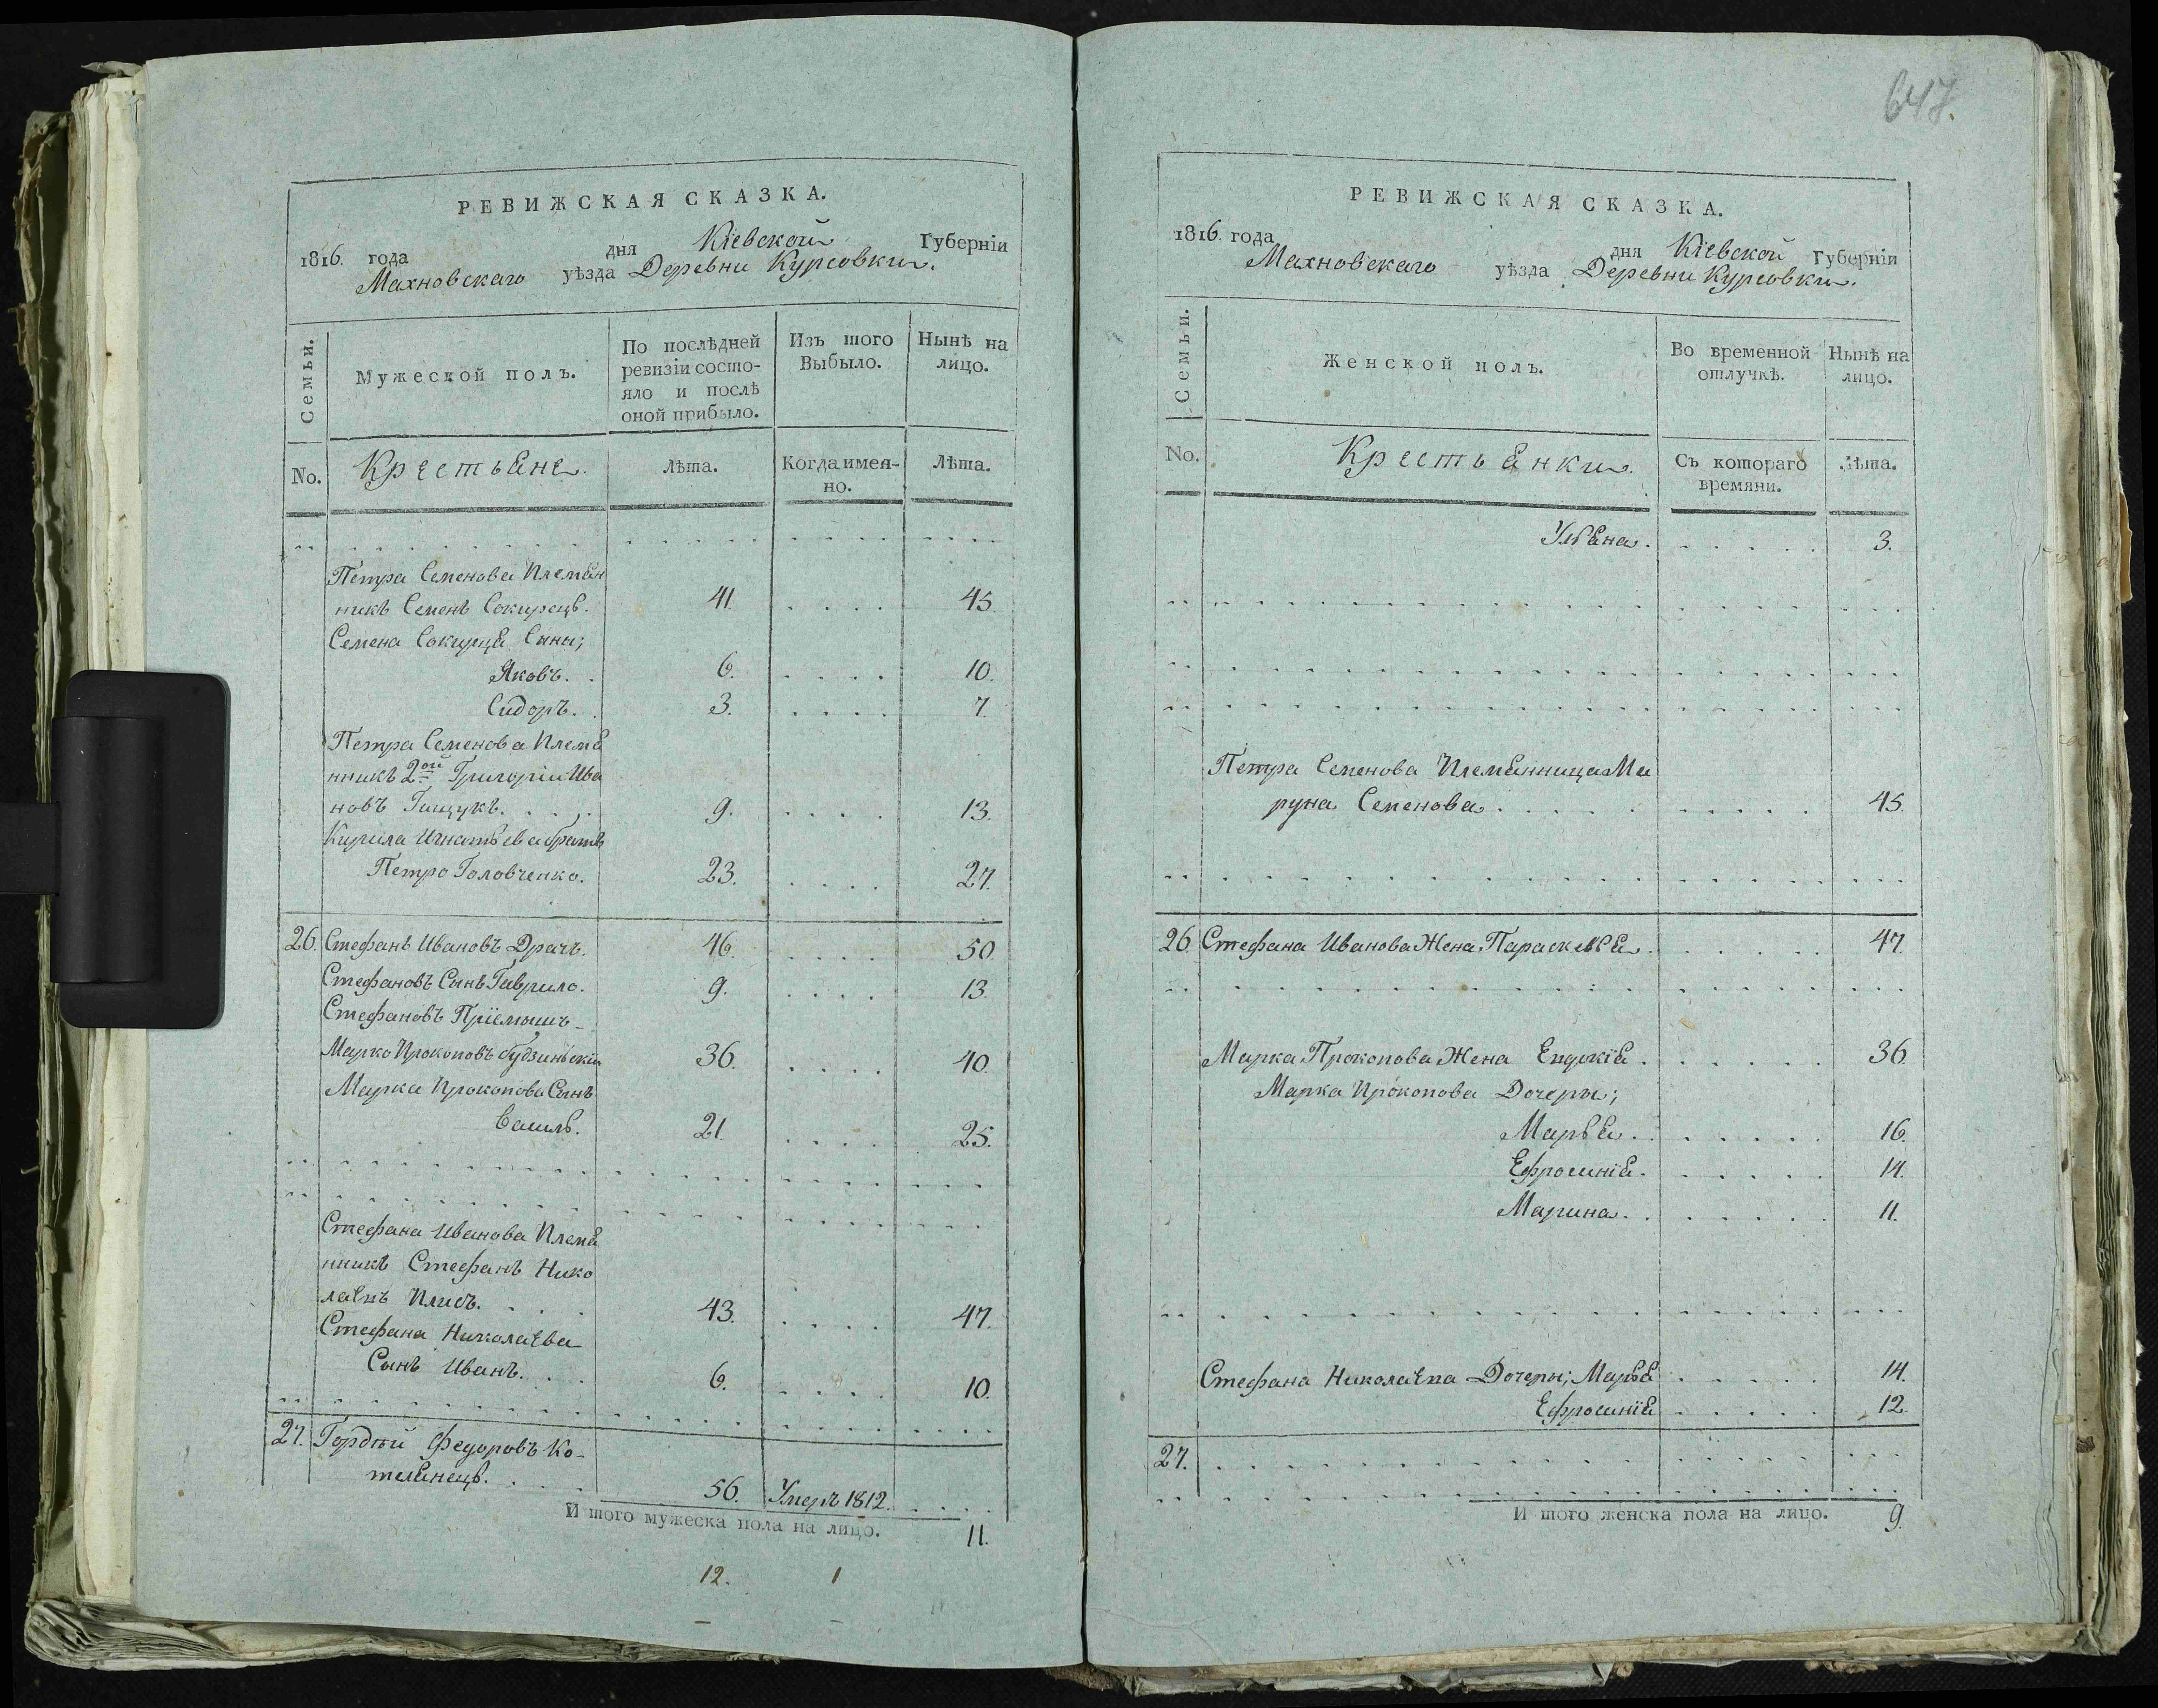 РЕВИЖСКАЯ СКАЗКА.
1816. года дня Кіевской Губерніи
Махновскаго уѣзда Деревни Курсовки.
Семьи. Мужеской полъ. По послѣдней ревизіи состо-яло и послѣ оной прибыло. Изъ того Выбыло. Нынѣ на лицо.
No. Крестьяне. Лѣта. Когда имен-но. Лѣта.
Петра Семенова Племян
никъ Семенъ Сокирецъ. 41. 45.
Семена Сокирца Сыны;
Яковъ. 6. 10.
Сидоръ. 3. 7.
Петра Семенова Племя
нникъ 2ой Григорій Ива
новъ Гищукъ. 9. 13.
Кирила Игнатьева братъ
Петро Головченко. 23. 27.
26. Стефанъ Ивановъ Драчъ. 46. 50.
Стефановъ Сынъ Гаврило. 9. 13.
Стефановъ Пріемышъ
Марко Прокоповъ Будзинскій 36. 40.
Марка Прокопова Сынъ
Василь. 21. 25.
Стефана Иванова Племя
нникъ Стефанъ Нико
лаевъ Плисъ. 43. 47.
Стефана Николаева
Сынъ Иванъ. 6. 10.
27. Гордѣй Федоровъ Ко-
телянецъ. 56. Умеръ 1812.
И того мужеска пола на лицо. 11.
12. 1
647.
РЕВИЖСКАЯ СКАЗКА.
1816. года дня Кіевской Губерніи
Махновскаго уѣзда Деревни Курсовки.
Семьи. Женской полъ. Во временной отлучкѣ. Нынѣ на лицо.
No. Крестьянки. Съ котораго времяни. Лѣта.
Ульяна. 3.
Петра Семенова Племянница Ма
руна Семенова. 45.
26. Стефана Иванова Жена Параскевья. 47.
Марка Прокопова Жена Евдокія. 36.
Марка Прокопова Дочеры;
Марья. 16.
Ефросинія. 14.
Марина. 11.
Стефана Николаева Дочеры; Марья 14.
Ефросинія 12.
27.
И того женска пола на лицо. 9.